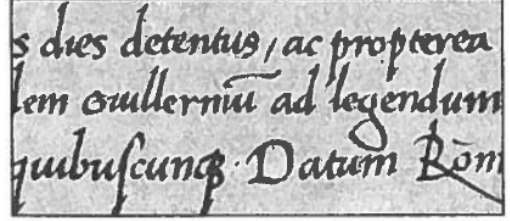 s dies detentus / ac propterea
lem Guillermū ad legendum
quibuſcunqꝫ · Datum Rōm